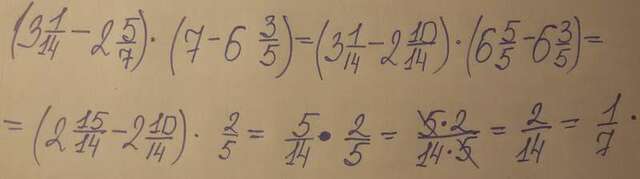 (3 1/14 − 2 5/7) · (7 − 6 3/5) = (3 1/14 − 2 10/14) · (6 5/5 − 6 3/5) =
= (2 15/14 − 2 10/14) · 2/5 = 5/14 · 2/5 = 5·2/14·5 = 2/14 = 1/7 .